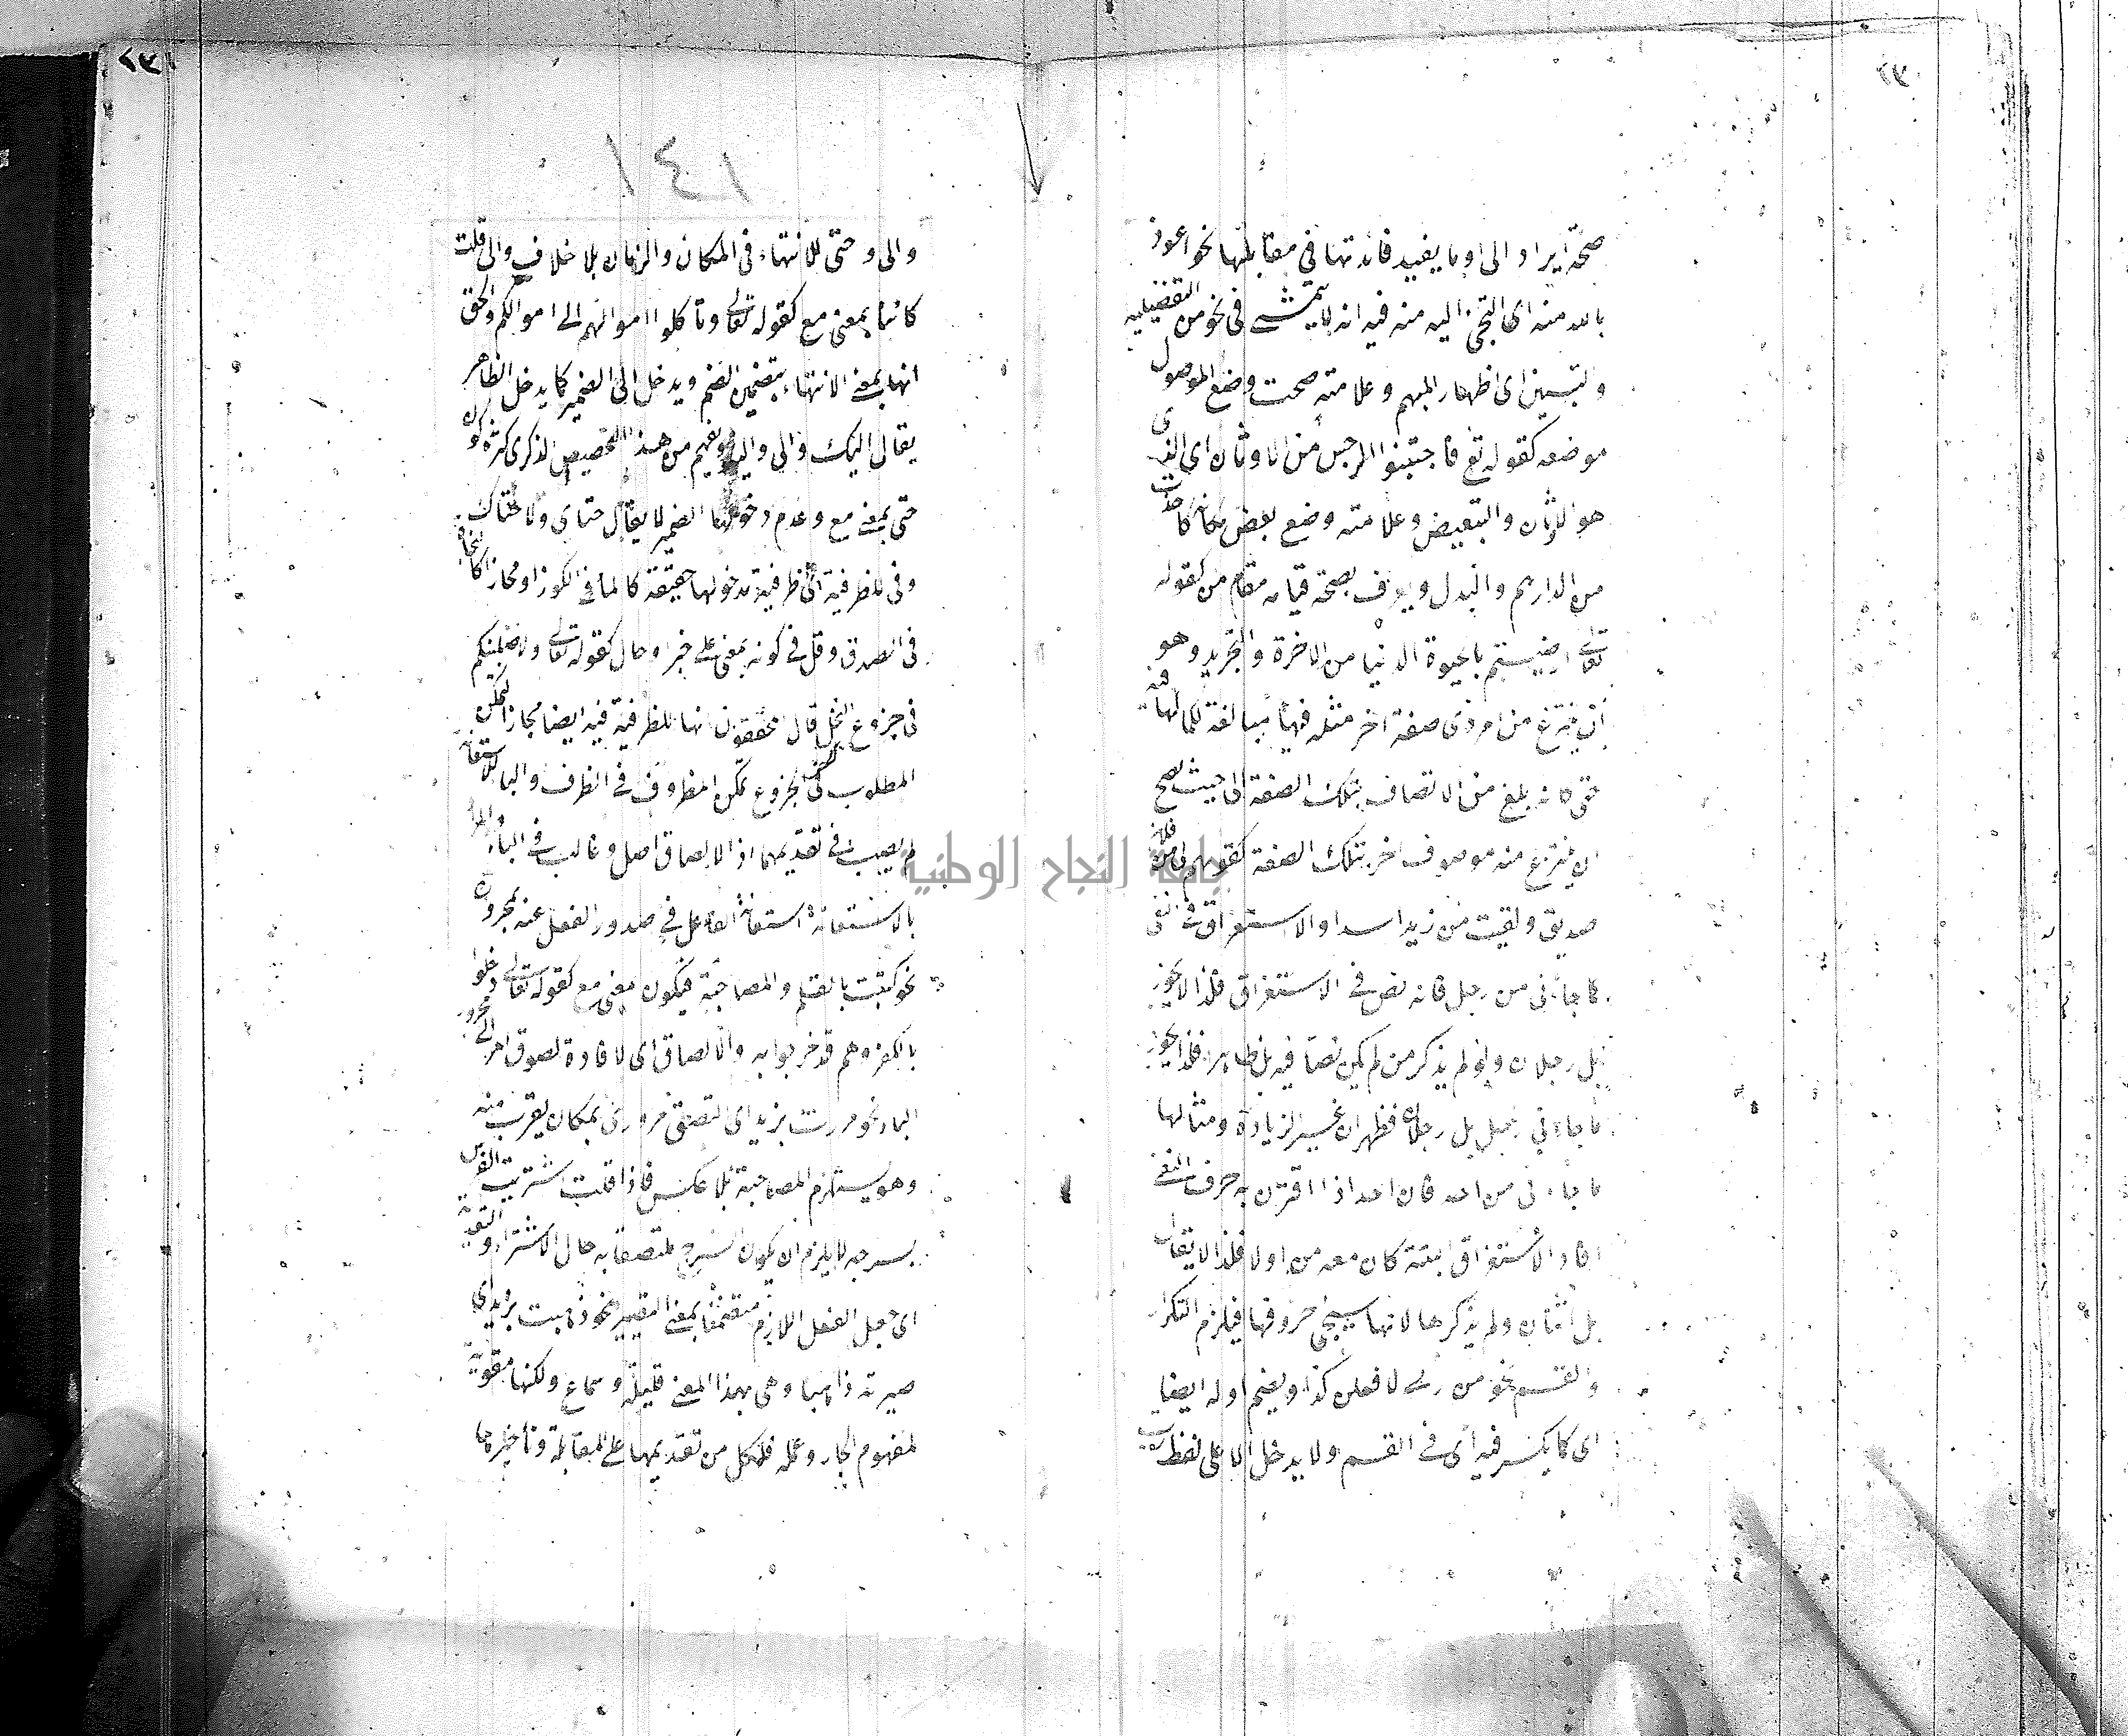 ٢٣٠
صحة ايراد الى او ما يفيد فائدتها فى مقابلتها نحو اعوذ
بالله منه اى التجئ اليه منه فيه انه لا يتمشى فى نحو من التفضيلية
والتبيين اى اظهار المبهم وعلامته صحت وضع الموصول
موضعه كقوله تع فاجتنبوا الرجس من الاوثان اى الذى
هو الاوثان والتبعيض وعلامته وضع بعض مكانه كاخذت
من الدراهم والبدل ويعرف بصحة قيامه مقام من كقوله
تعالى ارضيتم بالحيوة الدنيا من الاخرة والتجريد وهو
ان ينتزع من امر ذى صفة اخر مثله فيها مبالغة لكمالها فيه
حتى كانه بلغ من الاتصاف بتلك الصفة الى حيث يصح
ان ينتزع منه موصوف اخر بتلك الصفة كقولهم لى من فلان
صديق ولقيت من زيد اسدا والاستغراق فى النفى
ما جاءنى من رجل فانه نص فى الاستغراق فلذا لا يجوز
بل رجلان ولو لم يذكر من لم يكن نصا فيه بل ظاهر فلذا يجوز
ما جاءنى رجل بل رجلان فظهر ان غير الزيادة ومثالها
ما جاءنى من احد فان احد اذا اقترن به حرف النفى
افاد الاستغراق البتة كان معه من اولا فلذا لا يقال
بل اثنان ولم يذكرها لانها سيجئ حروفها فيلزم التكرار
والقسم نحو من ربى لافعلن كذا ويضم اوله ايضا
اى كما يكسر فيه اى فى القسم ولا يدخل الا على لفظ رب
٢٣١
١٤١
والى وحتى للانتهاء فى المكان والزمان بلا خلاف والى قلت
كائنا بمعنى مع كقوله تعالى ولا تأكلوا اموالهم الى اموالكم والحق
انها بمعنى الانتهاء بتضمين الضم ويدخل الى الضمير كما يدخل الظاهر
يقال اليك والى واليه ويفهم من هذا التخصيص الذكرى كثرة كون
حتى بمعنى مع وعدم دخولها الضمير لا يقال حتاى ولا حتاك
وفى للظرفية اى ظرفية مدخولها حقيقة كالماء فى الكوز او مجازا كالنجاة
فى الصدق وقل فى كونه بمعنى على خبر او حال كقوله تعالى ولاصلبنكم
فى جزوع النخل قال المحققون انها للظرفية فيه ايضا مجازا لتمكن
المطلوب فى الجزوع تمكن المظروف فى الظرف والباء للاستعانة
لم يصب فى تقديمها اذ الالصاق اصل وغالب فى الباء والمراد
بالاستعانة استعانة الفاعل فى صدور الفعل عنه بمجروره
نحو كتبت بالقلم والمصاحبة فيكون بمعنى مع كقوله تعالى دخلوا
بالكفر وهم قد خرجوا به والالصاق اى لافادة لصوق امر الى مجرور
الباء نحو مررت بزيد اى التصق مرورى بمكان يقرب منه
وهو يستلزم المصاحبة بلا عكس فاذا قلت اشتريت الفرس
بسرجه لا يلزم ان يكون السرج ملتصقا به حال الاشتراء والتعدية
اى جعل الفعل اللازم متضمنا بمعنى التصيير نحو ذهبت بزيد اى
صيرته ذاهبا وهى بهذا المعنى قليلة وسماع ولكنها مقوية
لمفهوم الجار وعمله فلكل من تقديمها على المقابلة وتأخيرها
جامعة النجاح الوطنية